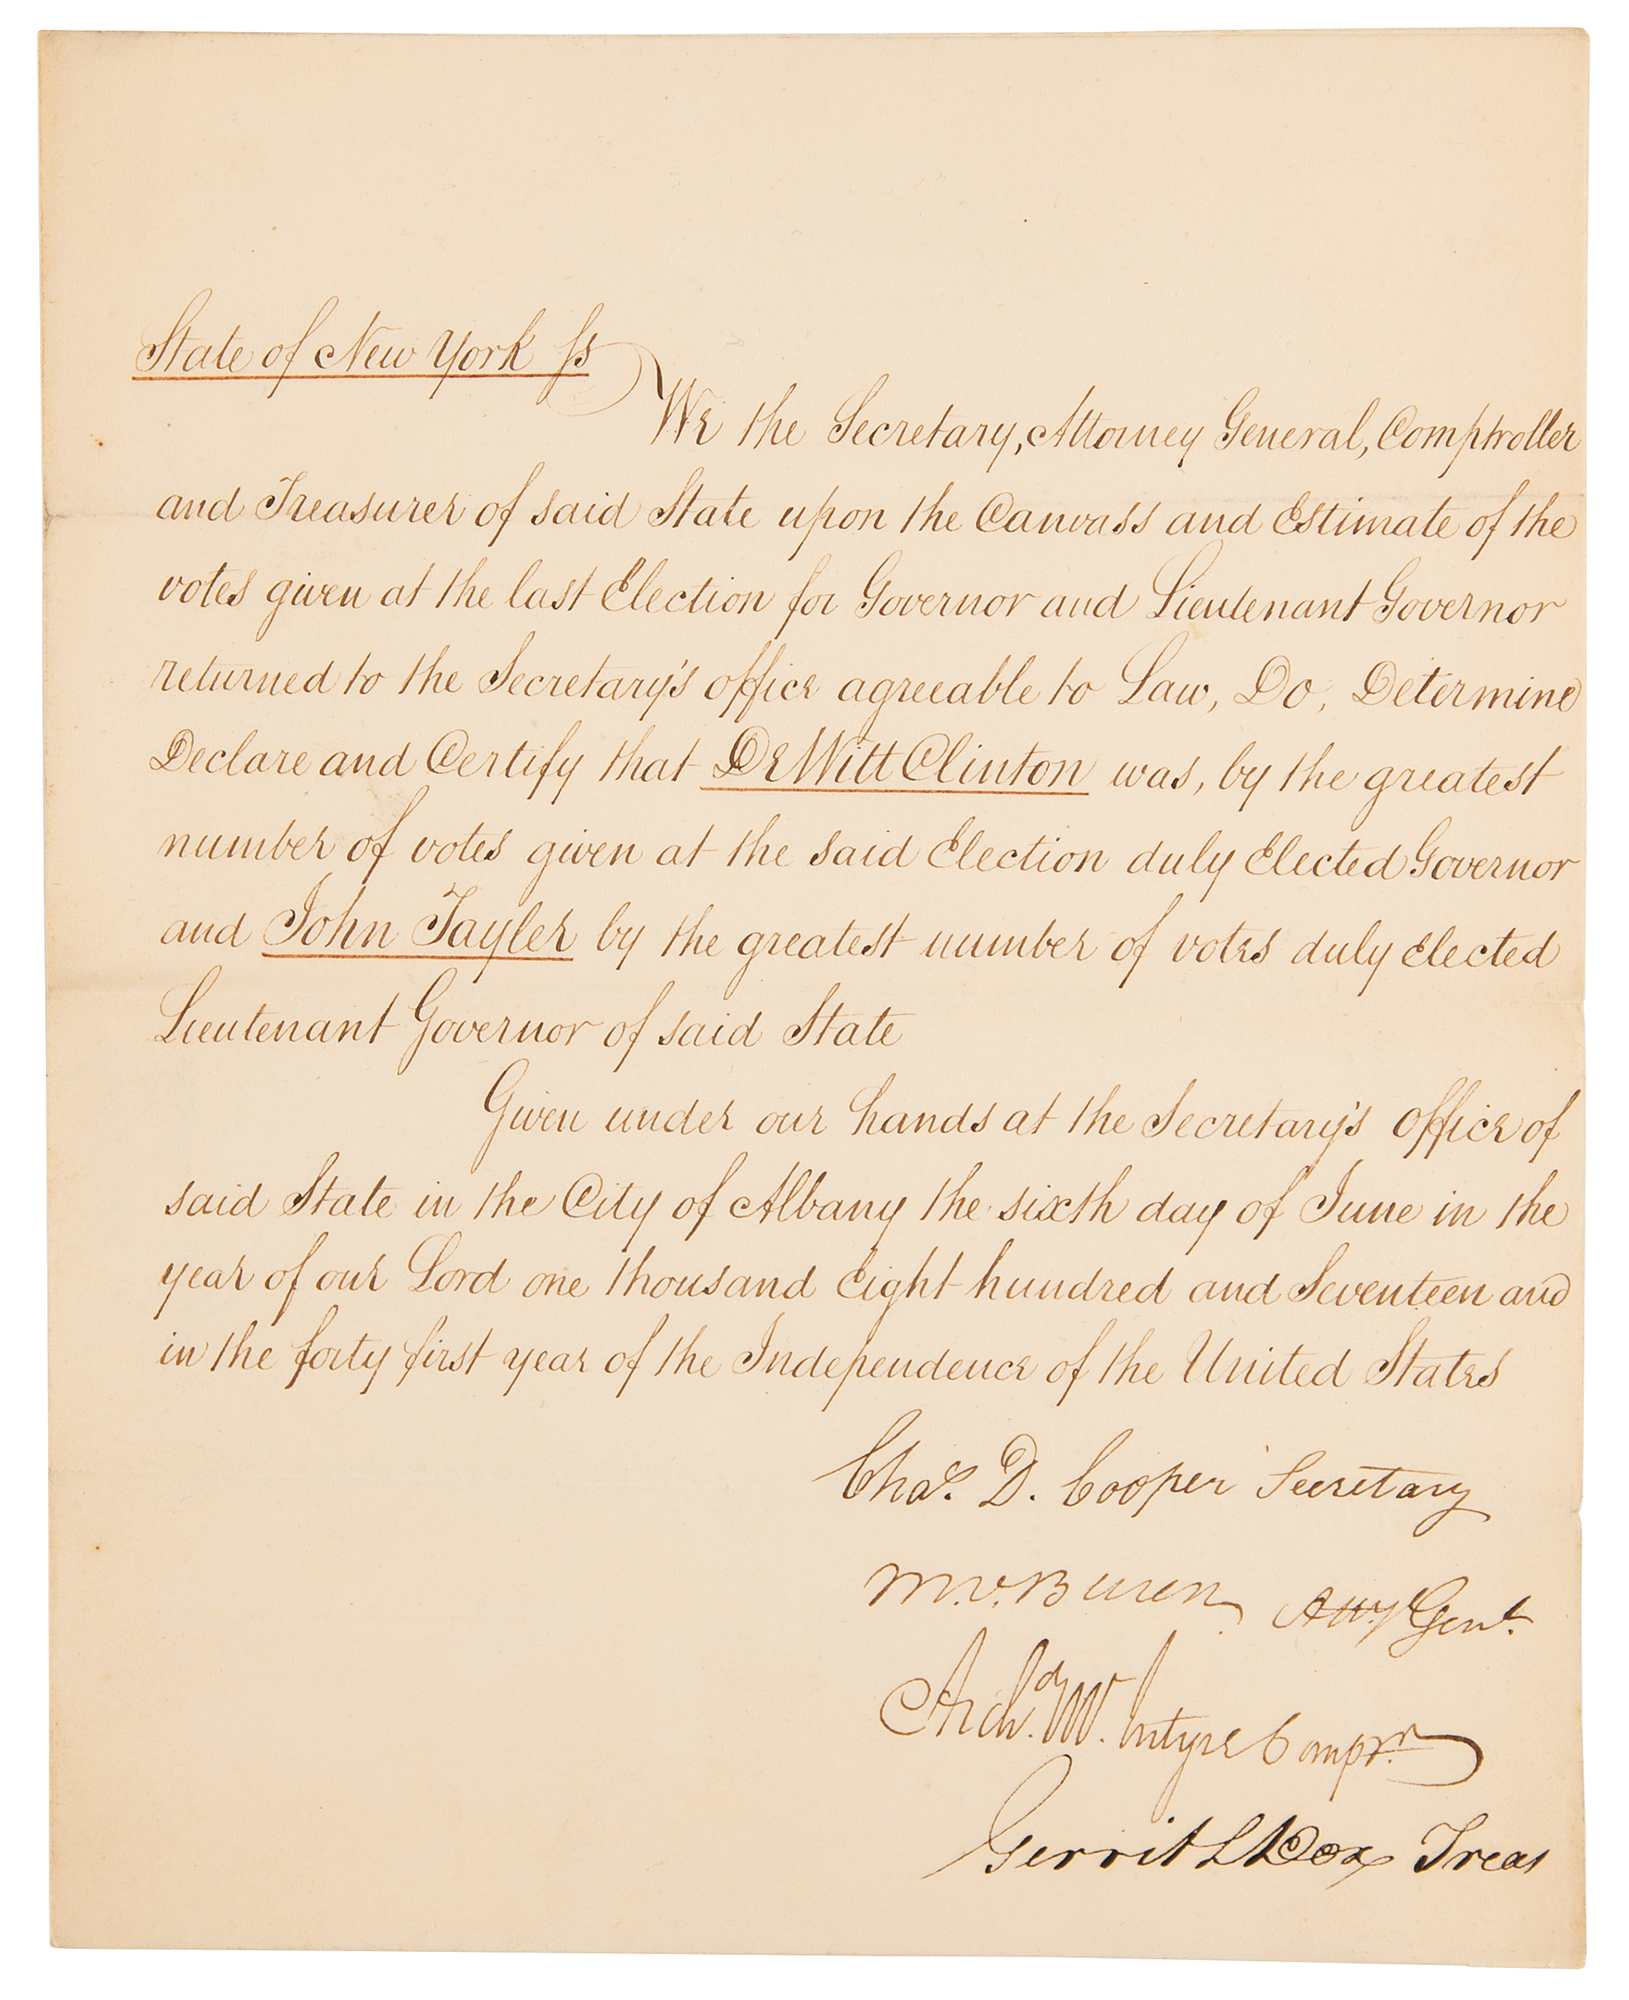 State of New York ss
We the Secretary, Attorney General, Comptroller
and Treasurer of said State upon the Canvass and Estimate of the
votes given at the last Election for Governor and Lieutenant Governor
returned to the Secretary's office agreeable to Law, Do, Determine
Declare and Certify that DeWitt Clinton was, by the greatest
number of votes given at the said Election duly Elected Governor
and John Tayler by the greatest number of votes duly elected
Lieutenant Governor of said State
Given under our hands at the Secretary's office of
said State in the City of Albany the sixth day of June in the
year of our Lord one thousand Eight hundred and Seventeen and
in the forty first year of the Independence of the United States
Chas. D. Cooper Secretary
M. V. Buren Atty Genl.
Archd. McIntyre Compr.
Gerrit L Dox Treas